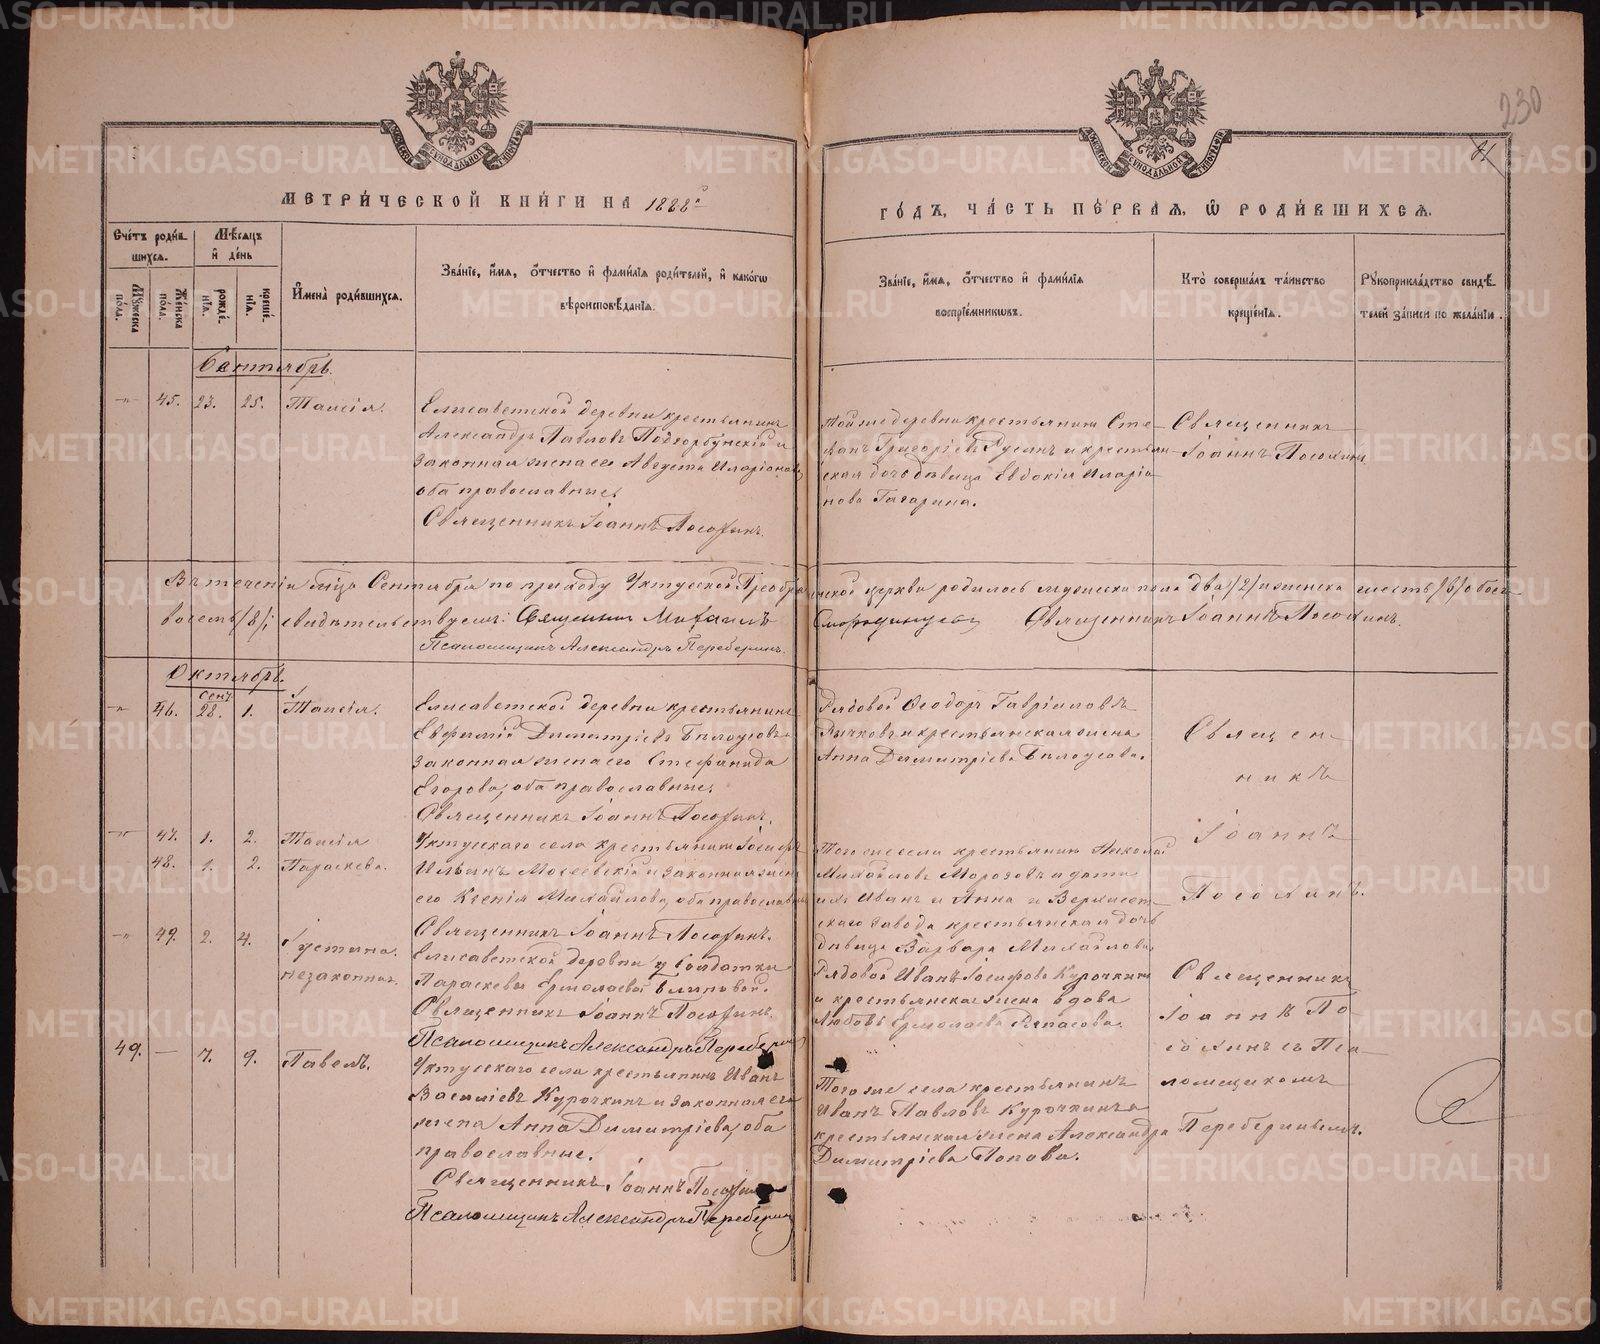 230
МЕТРИ́ЧЕСКОЙ КНИ́ГИ НА 1888 г.
ГО́ДЪ, ЧА́СТЬ ПЕ́РВАЯ, Ѿ РОДИ́ВШИХСЯ.
Сче́тъ роди́в-
шихся.
Му́жеска пола.
Же́нска пола.
Мѣ́сяцъ
и҆ де́нь
рожде́нїѧ.
креще́нїѧ.
И҆мена̀ роди́вшихся.
Зва́нїе, и҆́мя, ѻ҆́тчество и҆ фами́лїя роди́телей, и҆ како́гѡ
вѣроисповѣ́данїѧ.
Зва́нїе, и҆́мя, ѻ҆́тчество и҆ фами́лїя
воспрїе́мниковъ.
Кто̀ соверша́лъ та́инство
креще́нїѧ.
Рꙋкоприкла́дство свидѣ́-
телей за́писи по жела́нїю.
Сентябрь.
45. 23. 25. Таисія.
Елисаветской деревни крестьянинъ
Александръ Павловъ Подгорбунскій и
законная жена его Августа Иларіонова,
оба православные.
Священникъ Іоаннъ Посохинъ.
Той же деревни крестьянинъ Сте-
фанъ Григоріевъ Русинъ и крестьян-
ская дочь дѣвица Евдокія Иларіо-
нова Гагарина.
Священникъ
Іоаннъ Посохинъ
Въ теченіи мѣсяца Сентября по приходу Уктусской Преображенской церкви родилось мужеска пола два /2/ и женска шесть /6/ обоего
восемь /8/; свидѣтельствуемъ: Священникъ Михаилъ Смородинцевъ Священникъ Іоаннъ Посохинъ.
Псаломщикъ Александръ Переберинъ.
Октябрь.
сен.
46. 28. 1. Таисія.
Елисаветской деревни крестьянинъ
Евфимій Димитріевъ Бѣлоусовъ и
законная жена его Стефанида
Егорова, оба православные.
Священникъ Іоаннъ Посохинъ.
Рядовой Ѳеодоръ Гавріиловъ
Рычковъ и крестьянская жена
Анна Димитріева Бѣлоусова.
Священ-
никъ
Іоаннъ
Посохинъ.
47. 1. 2. Таисія
48. 1. 2. Параскева.
Уктусскаго села крестьянинъ Іосифъ
Ильинъ Мокеевскій и законная жена
его Ксенія Михайлова, оба православные
Священникъ Іоаннъ Посохинъ.
Того же села крестьянинъ Николай
Михайловъ Морозовъ и дѣти
ихъ Иванъ и Анна и Верхисет-
скаго завода крестьянская дочь
дѣвица Варвара Михайлова.
49. 2. 4. Іустина.
незаконная.
Елисаветской деревни у солдатки
Параскевы Ермолаевой Блиновой.
Священникъ Іоаннъ Посохинъ.
Псаломщикъ Александръ Переберинъ
Рядовой Иванъ Іосифовъ Курочкинъ
и крестьянская жена вдова
Любовь Ермолаева Рапасова.
Священникъ
Іоаннъ По-
сохинъ съ Пса-
ломщикомъ
Переберинымъ.
49. 7. 9. Павелъ.
Уктусскаго села крестьянинъ Иванъ
Василіевъ Курочкинъ и законная его
жена Анна Димитріева, оба
православные.
Священникъ Іоаннъ Посохинъ
Псаломщикъ Александръ Переберинъ
Того же села крестьянинъ
Иванъ Павловъ Курочкинъ и
крестьянская жена Александра
Димитріева Попова.
METRIKI.GASO-URAL.RU